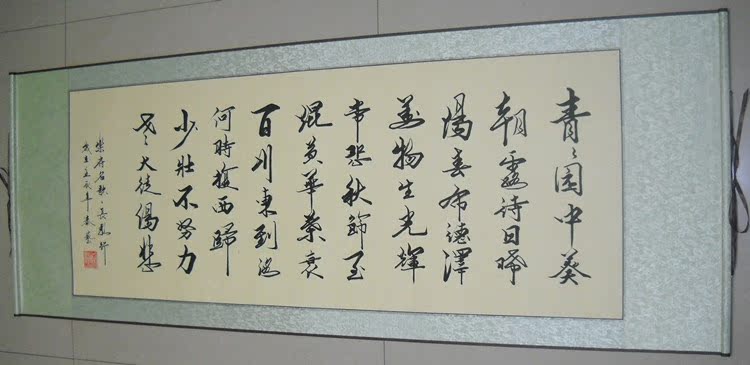 青々園中葵
朝露待日晞
陽春布德澤
萬物生光輝
常恐秋節至
焜黃華葉衰
百川東到海
何時復西歸
少壯不努力
老大徒傷悲
樂府名歌長歌行